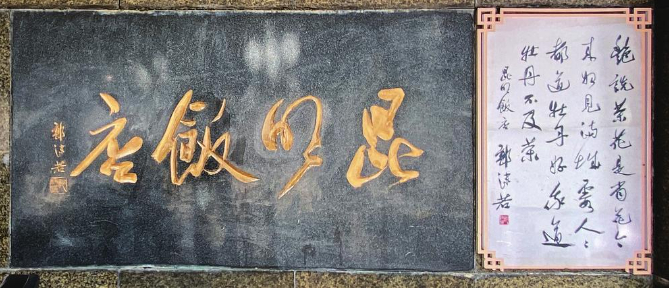 昆明飯店
郭沫若
艷說茶花是省花今
来始見滿城霞人々
都道牡丹好我道
牡丹不及茶
昆明飯店 郭沫若